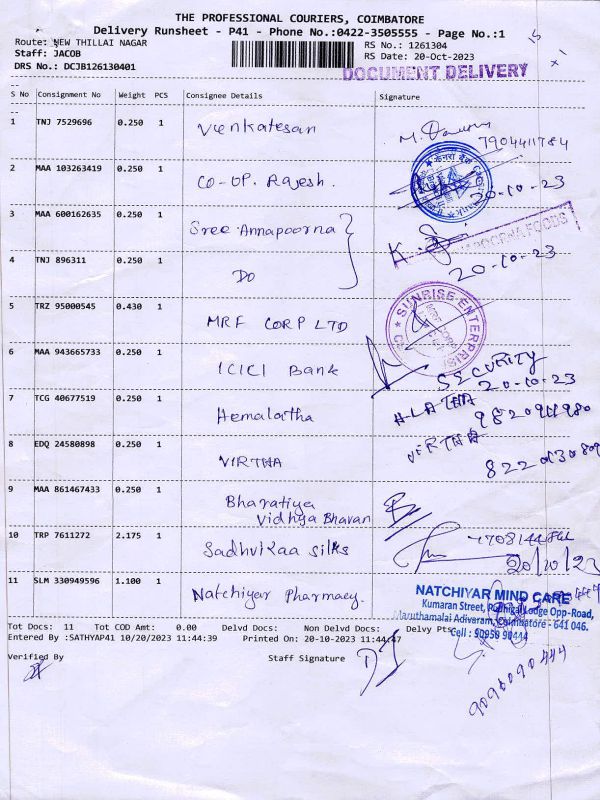 THE PROFESSIONAL COURIERS, COIMBATORE
Delivery Runsheet - P41 - Phone No.:0422-3505555 - Page No.:1
Route: NEW THILLAI NAGAR RS No.: 1261304
Staff: JACOB RS Date: 20-Oct-2023
DRS No.: DCJB126130401
DOCUMENT DELIVERY
S No Consignment No Weight PCS Consignee Details Signature
1 TNJ 7529696 0.250 1 Venkatesan
7904411784
2 MAA 103263419 0.250 1 CO-OP. Rajesh.
20-10-23
3 MAA 600162635 0.250 1 Sree Annapoorna
FOODS
4 TNJ 896311 0.250 1 DO
20-10-23
5 TRZ 95000545 0.430 1 MRF CORP LTD
SUNRISE ENTERPRISE
6 MAA 943665733 0.250 1 ICICI Bank
SECURITY
20-10-23
7 TCG 40677519 0.250 1 Hemalatha
H-LATHA
8 EDQ 24580898 0.250 1 VIRTHA
VIRTHA
9 MAA 861467433 0.250 1 Bharatiya
Vidhya Bhavan
10 TRP 7611272 2.175 1 Sadhvikaa silks
20/10/23
11 SLM 330949596 1.100 1 Natchiyar Pharmacy.
NATCHIYAR MIND CARE
Kumaran Street, Lodge Opp-Road,
Maruthamalai Adivaram, Coimbatore - 641 046.
Cell : 90950 90444
Tot Docs: 11 Tot COD Amt: 0.00 Delvd Docs: Non Delvd Docs: Delvy Pts:
Entered By :SATHYAP41 10/20/2023 11:44:39 Printed On: 20-10-2023 11:44:47
Verified By Staff Signature
9095090444